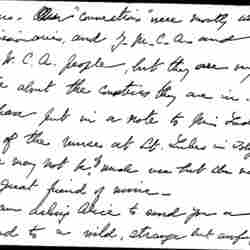 "connections" were mostly
and Y.M.C.A. and
W.C.A. people, but they are
about the countries they are in
but in a note to Miss
of the nurses at St. Lukes in
may not be much use but she
great friend of mine -
asking Alice to send you a
to a wild, strange but